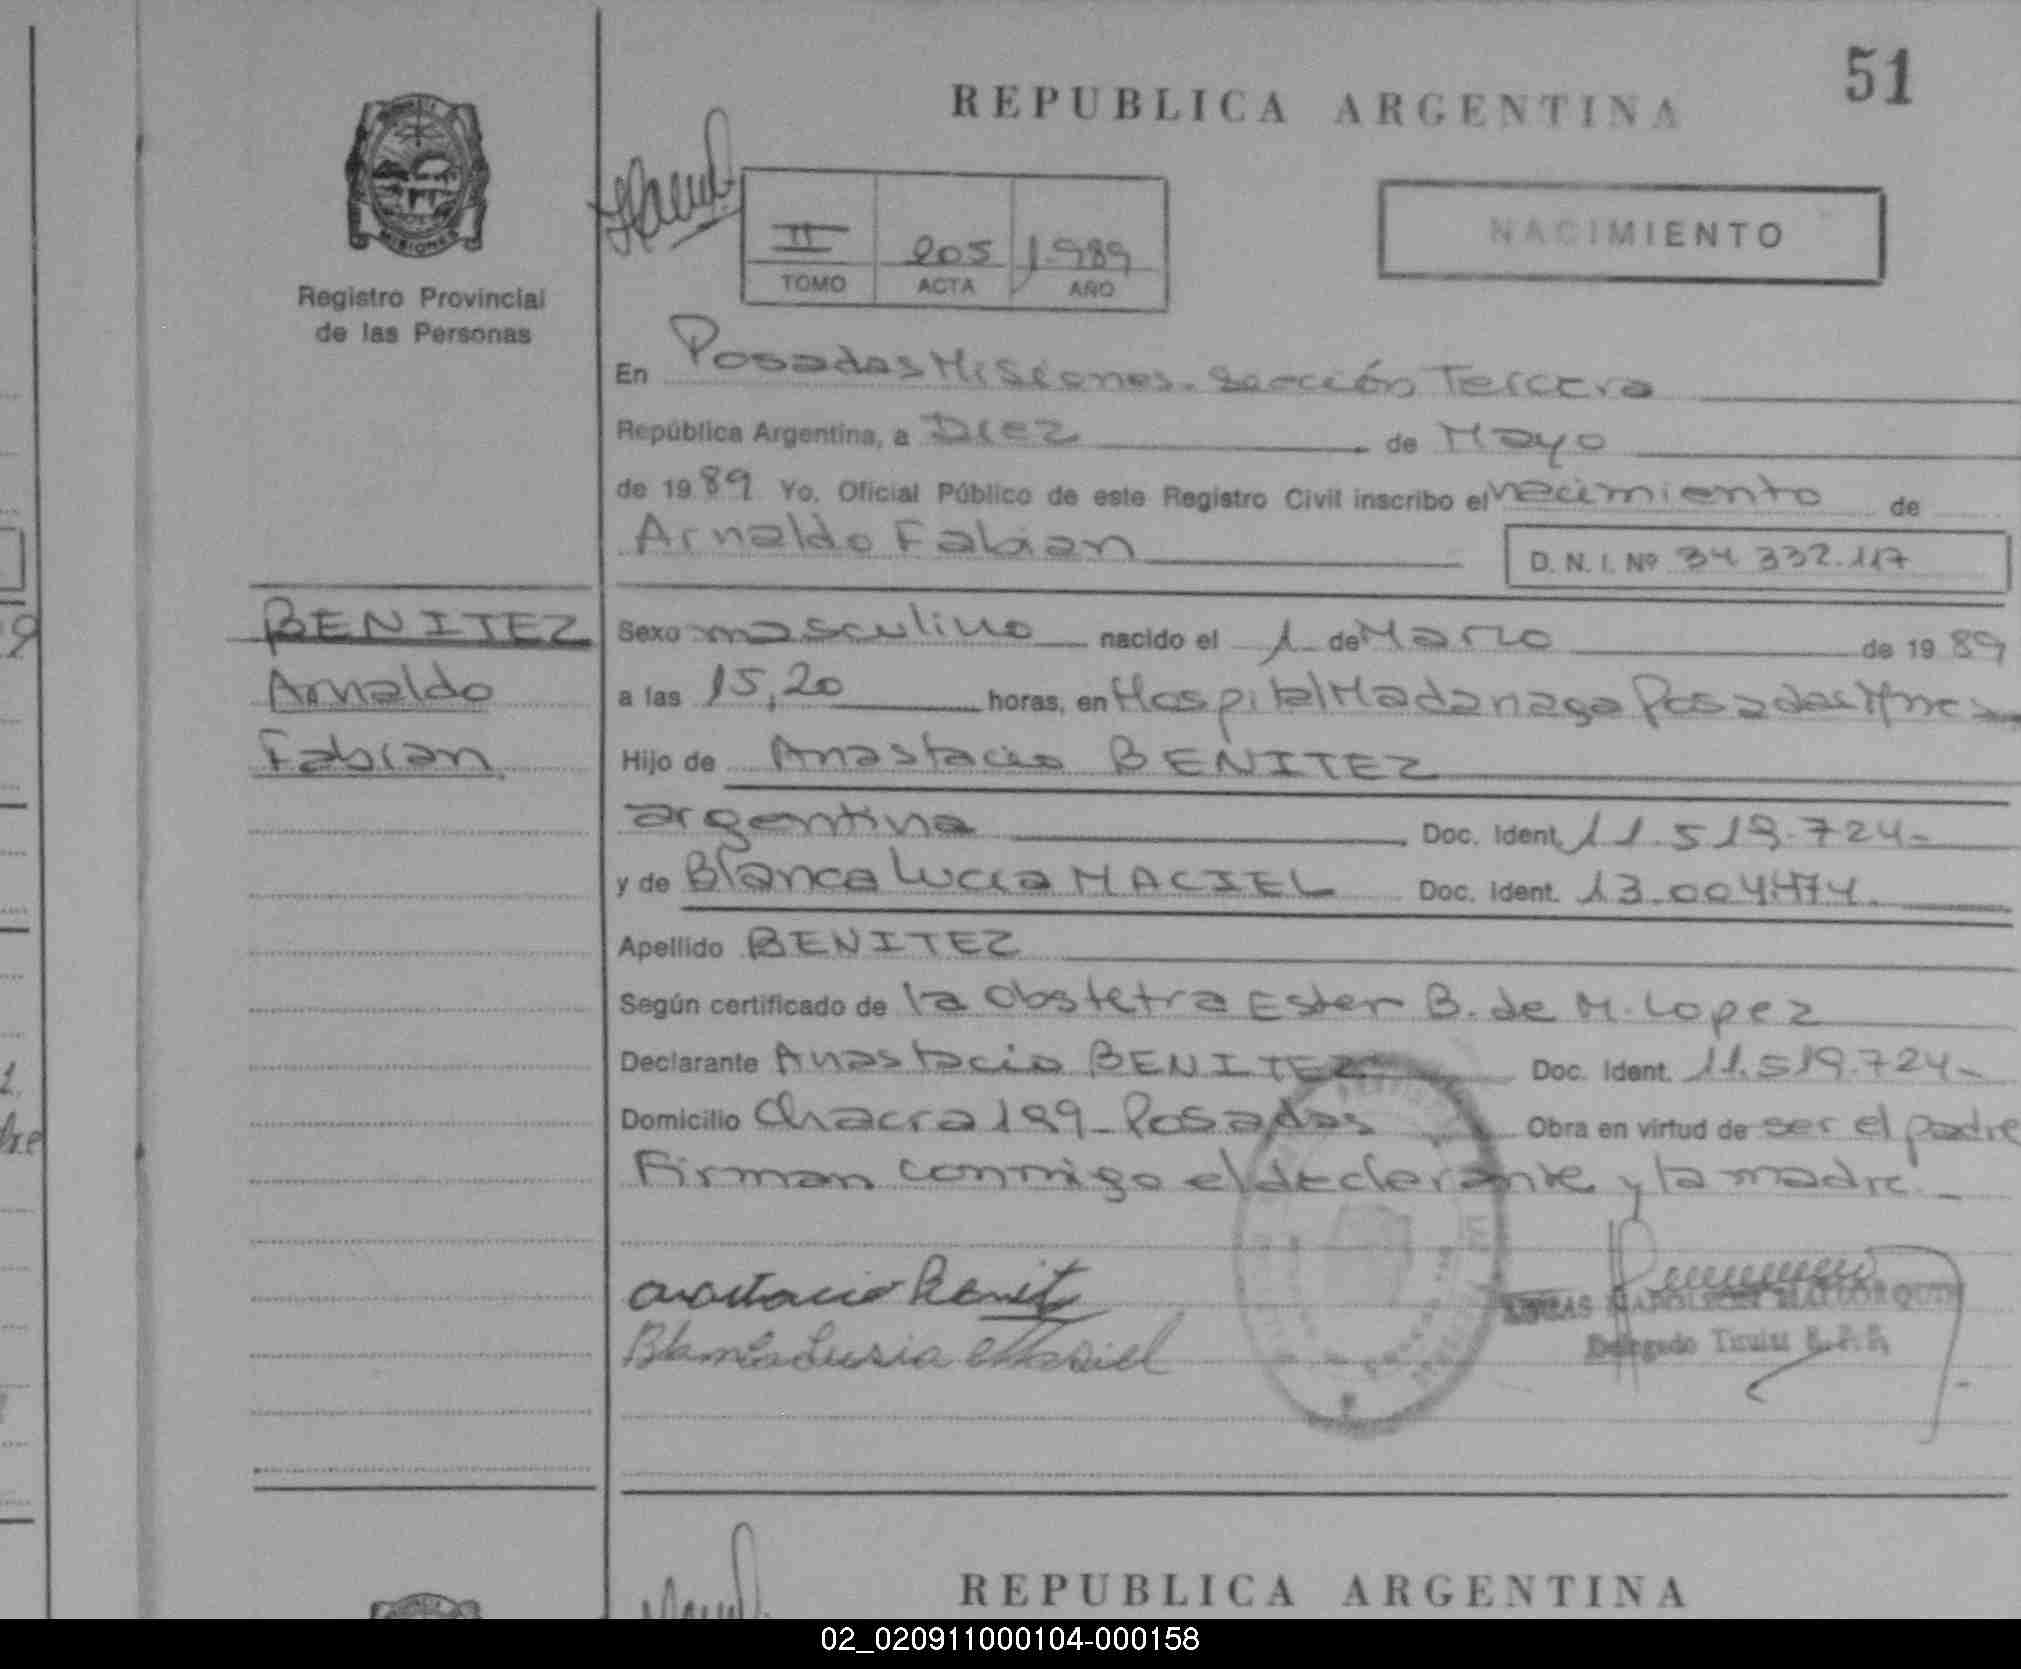 51
REPUBLICA ARGENTINA
MISIONES
Registro Provincial
de las Personas
II 205 1.989
TOMO ACTA AÑO
NACIMIENTO
En Posadas Misiones. Sección Tercera
República Argentina, a Diez de Mayo
de 1989 Yo, Oficial Público de este Registro Civil inscribo el nacimiento de
Arnaldo Fabian
D. N. I. Nº 34 332.117
BENITEZ
Arnaldo
Fabian
Sexo masculino nacido el 1 de Marzo de 1989
a las 15,20 horas, en Hospital Madariaga Posadas Mnes
Hijo de Anastacio BENITEZ
argentina Doc. Ident. 11.519.724-
y de Blanca Lucia MACIEL Doc. Ident. 13.004.474.
Apellido BENITEZ
Según certificado de la Obstetra Ester B. de M. Lopez
Declarante Anastacio BENITEZ Doc. Ident. 11.519.724-
Domicilio Chacra 199- Posadas Obra en virtud de ser el padre
Firman conmigo el declarante y la madre.-
Anastacio Benit
Blanca Lusia Masiel
Delegado Titular R.P.P.
REPUBLICA ARGENTINA
02_020911000104-000158